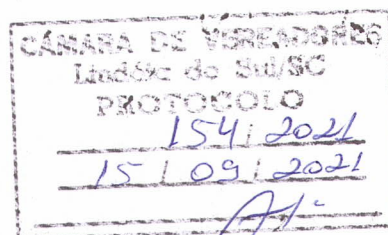 CÂMARA DE VEREADORES
Lindóia do Sul/SC
PROTOCOLO
154 / 2021
15 / 09 / 2021